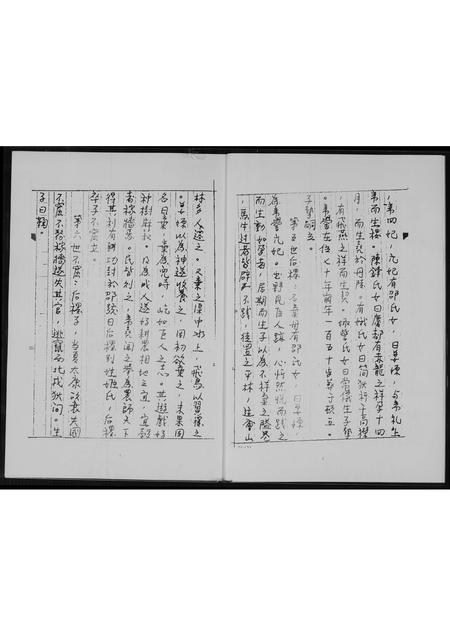 第四妃,元妃有邰氏女,曰姜嫄,与帝礼生
帝而生稷。陳鋒氏女曰慶都有赤龍之祥孕十四
月,而生堯於丹陵。有娀氏女曰簡狄祈于高禖
,有飛燕之祥而生契。娵訾氏女曰常儀生子摯
。帝嚳在位七十年
子摯嗣立。
第五世后稷:
為帝嚳元妃。出野見巨人跡,心忻然悅而踐之
而生動如孕者,居期而生子以為不祥棄之隘巷
,馬牛过者皆辟不踐,徙置之平林,適會山
林多人遷之。又棄之渠中冰上,飛鳥以翼覆之
。姜嫄以為神遂收養之,因初欲棄之,
名曰棄,棄為兒時,屹如巨人之志。其遊戲好
种樹麻菽。及為成人遂好耕農相地之宜,宜穀
者稼穡焉。民皆則之,帝堯聞之舉為農師天下
得其利有功封於邰號曰后稷別姓姬氏,后稷
卒子不窋立。
第六世不窋:后稷子,當夏太康政衰去國
不窋不務稼穡遂失其官,逃竄於北戎狄间。生
子曰鞠。